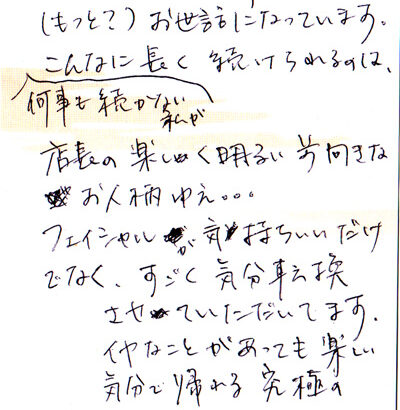 (もっと?) お世話になっています。
こんなに長く続けられるのは、
何事も続かない私が
店長の楽しく明るい前向きな
お人柄ゆえ...
フェイシャルが気持ちいいだけ
でなく、すごく気分転換
させていただいてます。
イヤなことがあっても楽しい
気分で帰れる究極の